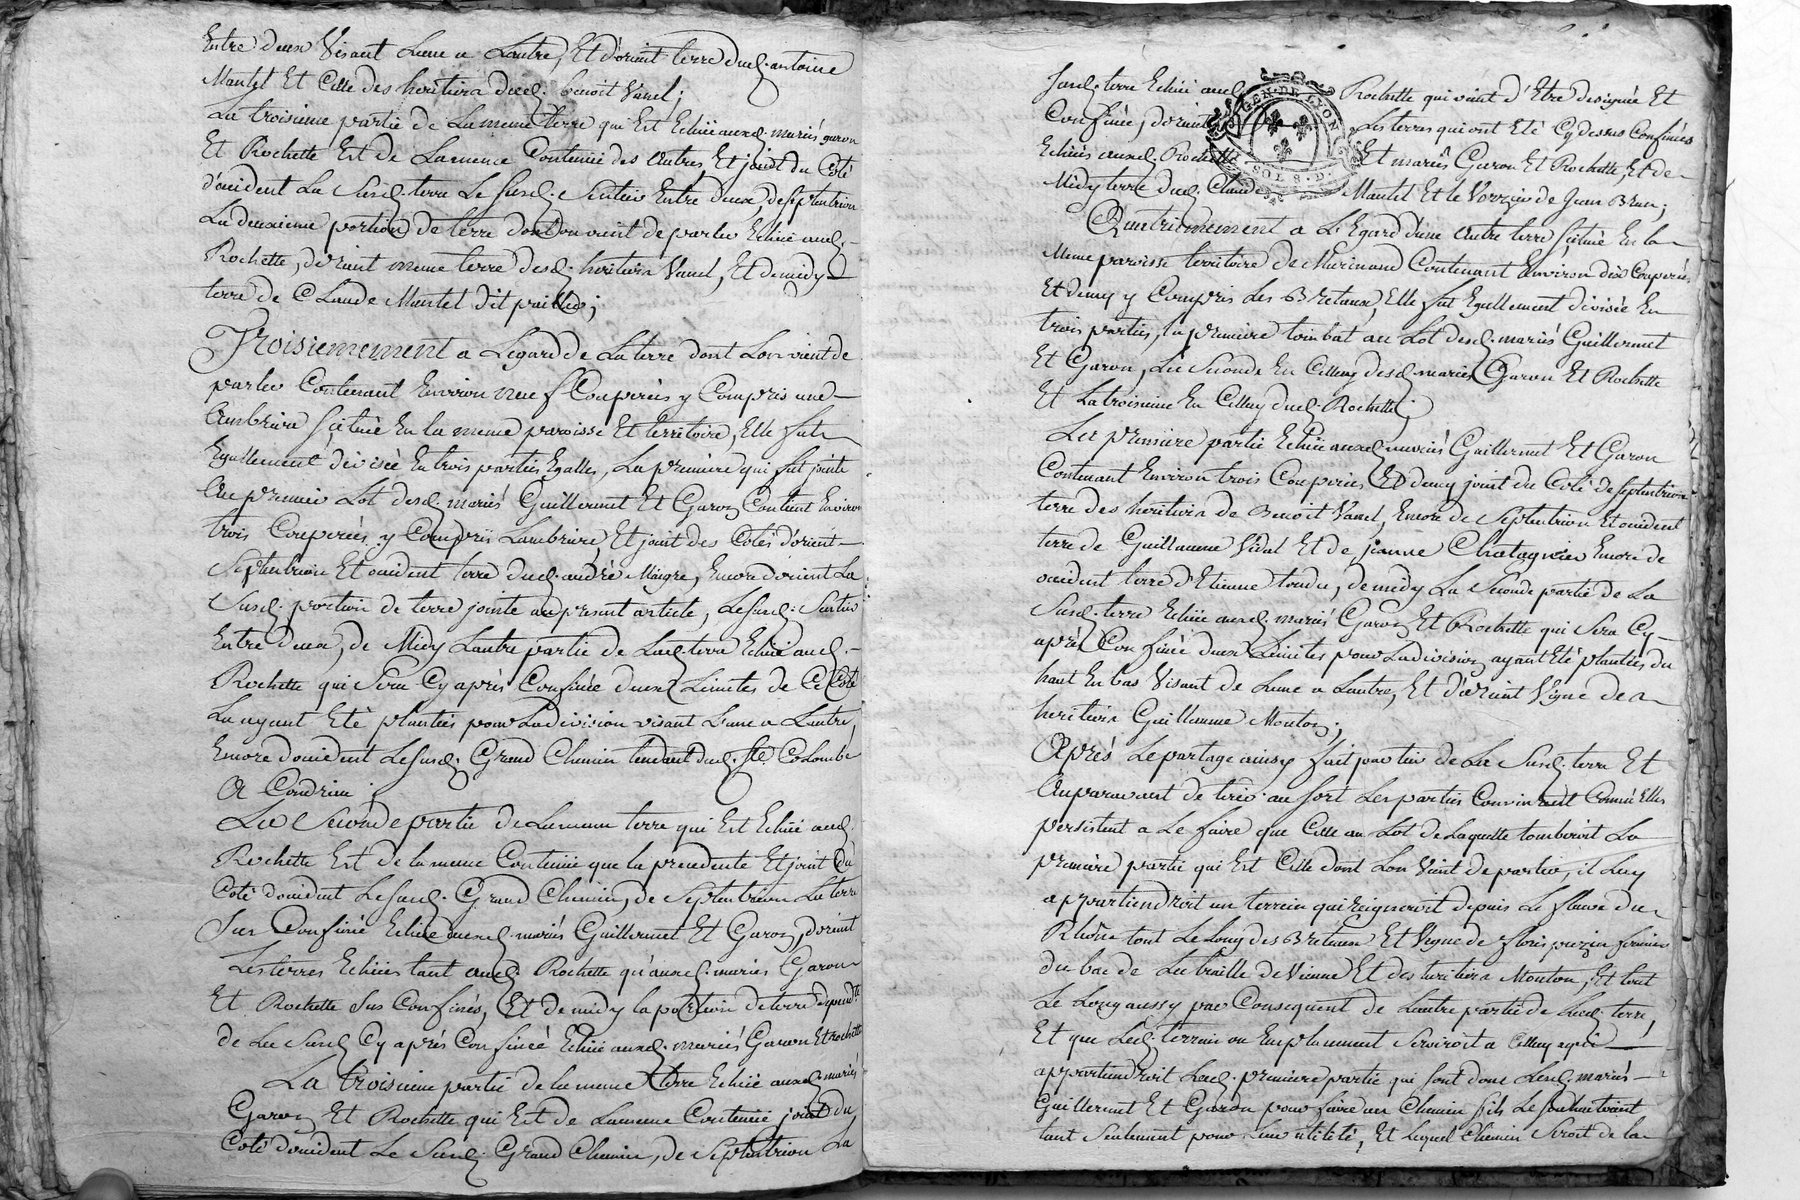 Entre deux Visant Lune a Lautre, Et d'orient terre dud. antoine
Mantel Et Celle des heritiers dud. benoit Vanel;
La troisieme partie de La meme terre qui Est Echüe auxd. mariés garon
Et Rochette Est de Lameme Contenüe des autres Et joint du Coté
d'occident La Susd. terre Le susd. Sentier Entre deux, de septentrion
La deuxieme portion de terre dont on vient de parler Echüe aud.
Rochette, d'orient meme terre desd. heritiers Vanel, Et de midy
terre de Claude Mantel dit paillio;
Troisiemement a Legard de La terre dont Lon vient de
parler Contenant Environ neuf Couperées y Compris une
Lambriere sçituée En la meme paroisse Et territoire, Elle fut
Egallement divisée En trois parties Egalles, La premiere qui fut jointe
au premier Lot desd. mariés Guillermet Et Garon Contient Environ
trois Couperées y Compris Lambriere, Et joint des Cotés d'orient
Septentrion Et occident terre dud. andré Maigre, Encore d'orient La
Susd. portion de terre jointe au present article, Le susd. Sentier
Entre deux, de Midy Lautre partie de Lad. terre Echüe aud.
Rochette qui Sera Cy après Confinée deux Limites de Ce Coté
La ayant Eté plantées pour La division visant Lune a Lautre,
Encore d'occident Le susd. Grand Chemin tendant dud. Ste. Colombe
A Condrieu;
La Seconde partie de La meme terre qui Est Echüe aud.
Rochette Est de la meme Contenüe que la precedente Et joint du
Coté d'occident Le susd. Grand Chemin, de Septentrion La terre
Sus Confinée Echüe auxd. mariés Guillermet Et Garon, d'orient
Les terres Echües tant aud. Rochette qu'auxd. mariés Garon
Et Rochette Sus Confinés, Et de midy la portion de terre depend.te
de La Susd. Cy après Confinée Echüe auxd. mariés Garon Et rochette
La troisieme partie de la meme terre Echüe auxd. mariés
Garon Et Rochette qui Est de La meme Contenüe joint du
Coté d'occident Le Susd. Grand Chemin, de Septentrion La
Susd. terre Echüe aud. Rochette qui vient d'Etre designée Et
Confinée, d'orient Les terres qui ont Eté Cy dessus Confinées
Echües auxd. Rochette Et mariés Garon Et Rochette, Et de
Midy terre dud. Claude Mantel Et le Verzin de Jean Brun;
GEN. DE LYON
SOLS. D.
Quatriemement a L'Egard d'une autre terre sçituée En la
Meme paroisse territoire de Murinand Contenant Environ dix Couperées
Et demy y Compris Les Bretaux, Elle fut Egallement divisée En
trois parties, la premiere tombat au Lot desd. mariés Guillermet
Et Garon, La Seconde En Celluy desd. mariés Garon Et Rochette
Et La troisieme En Celluy dud. Rochette;
La premiere partie Echüe auxd. mariés Guillermet Et Garon
Contenant Environ trois Couperées Et demy joint du Coté de Septentrion
terre des heritiers de Benoit Vanel, Encore de Septentrion Et occident
terre de Guillaume Vidal Et de jeanne Chatagnier Encore de
occident terre d'Etienne tondu, de midy La Seconde partie de La
Susd. terre Echüe auxd. mariés Garon Et Rochette qui Sera Cy
après Confinée deux Limites pour La division ayant Eté plantées du
haut En bas Visant de Lune a Lautre, Et d'orient Vigne de
heritiers Guillaume Mouton;
Après Le partage ainsy fait partie de La Susd. terre Et
Auparavant de tirer au sort Les parties Convinrent Comme Elles
persistent a Le faire que Celle au Lot de Laquelle tomberoit La
premiere partie qui Est Celle dont Lon Vient de parler, il Luy
appartiendroit un terrein qui Reigneroit depuis Le fleuve du
Rhône tout Le Long des Bretaux Et Vigne de floris pouzin fermier
du bac de La traille de Vienne Et des heritiers Mouton, Et tout
Le Long aussy par Consequent de Lautre partie de Lad. terre,
Et que Led. terrein ou Emplacement Serviroit a Celluy a qui
appartiendroit Lad. premiere partie qui sont donc Lesd. mariés
Guillermet Et Garon pour faire un Chemin s'ils Le souhaitoient
tant Seulement pour Leur utilité, Et Lequel Chemin Seroit de la